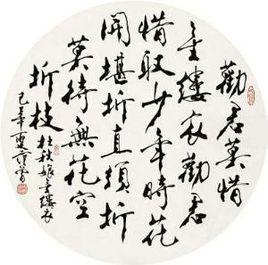 勸君莫惜
金縷衣勸君
惜取少年時花
開堪折直須折
莫待無花空
折枝
杜秋娘金縷衣